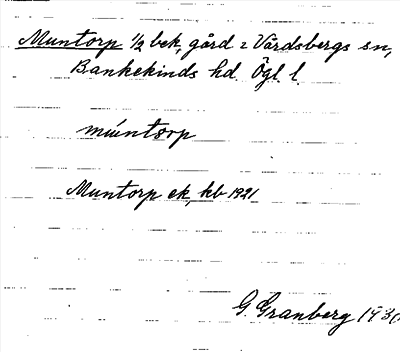 Muntorp 1/2 bek, gård i Vårdsbergs sn,
Bankekinds hd. Ögl l.
múntorp
Muntorp ek, kb 1921
G. Granberg 1930